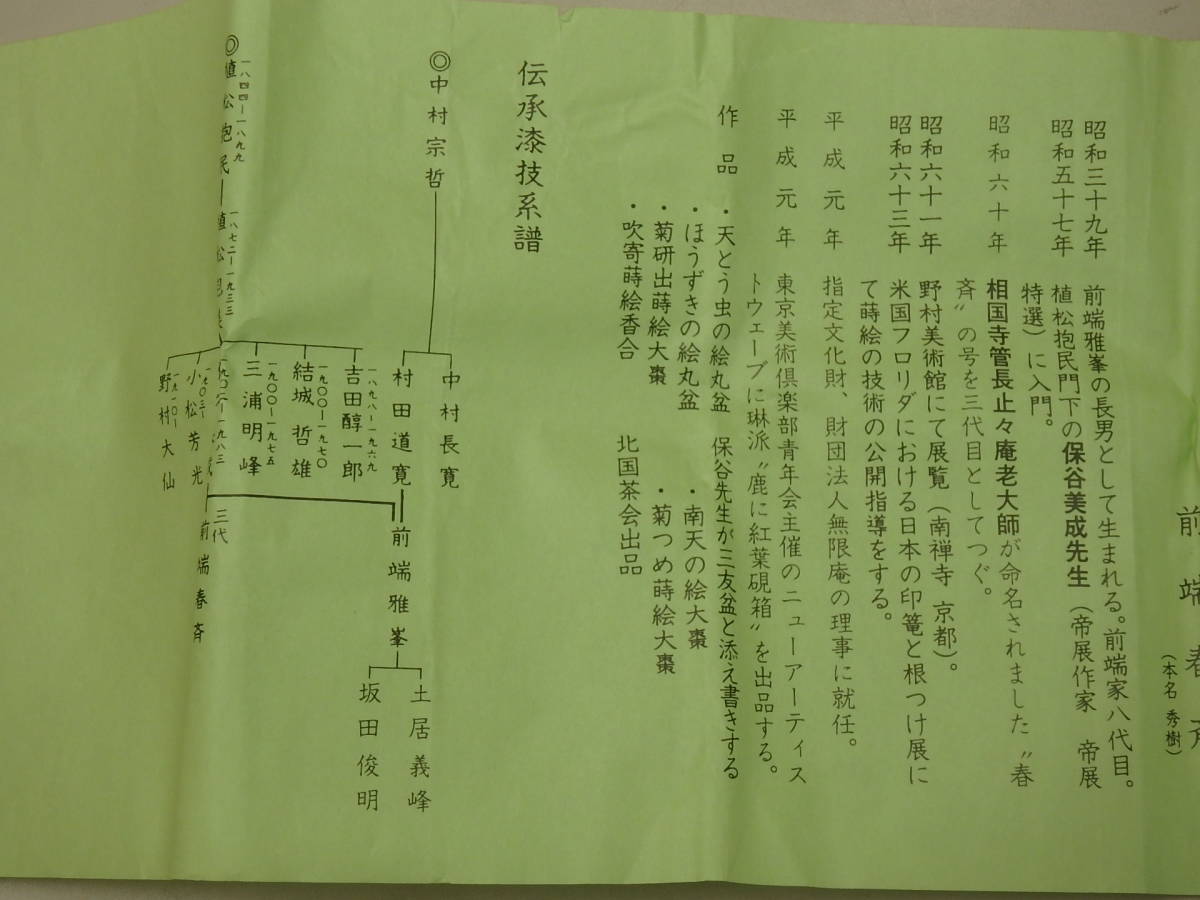 前端春斉
（本名 秀樹）
昭和三十九年 前端雅峯の長男として生まれる。前端家八代目。
昭和五十七年 植松抱民門下の保谷美成先生（帝展作家 帝展
特選）に入門。
昭和六十年 相国寺管長止々庵老大師が命名されました〝春
斉〟の号を三代目としてつぐ。
昭和六十一年 野村美術館にて展覧（南禅寺 京都）。
昭和六十三年 米国フロリダにおける日本の印篭と根つけ展に
て蒔絵の技術の公開指導をする。
平成元年 指定文化財、財団法人無限庵の理事に就任。
平成元年 東京美術倶楽部青年会主催のニューアーティス
トウェーブに琳派〝鹿に紅葉硯箱〟を出品する。
作品 ・天とう虫の絵丸盆 保谷先生が三友盆と添え書きする
・ほうずきの絵丸盆 ・南天の絵大棗
・菊研出蒔絵大棗 ・菊つめ蒔絵大棗
・吹寄蒔絵香合 北国茶会出品
伝承漆技系譜
◎中村宗哲
中村長寛
村田道寛
前端雅峯
土居義峰
坂田俊明
◎植松抱民
一八四四ー一八九九
植松抱美
一八七二ー一九三三
吉田醇一郎
一八九八ー一九六九
結城哲雄
一九〇〇ー一九七〇
三浦明峰
一九〇〇ー一九七五
ー一九八三
三代
前端春斉
小松芳光
一九〇三ー
野村大仙
一九一〇ー